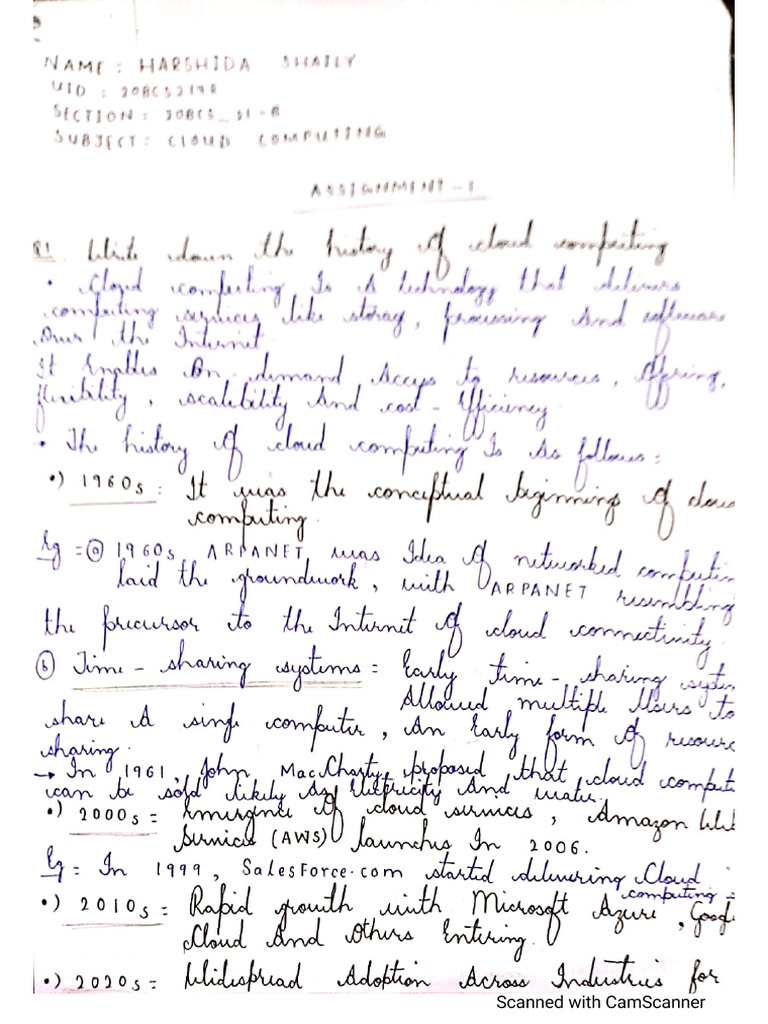 NAME : HARSHIDA SHAILY
UID : 20BCS2198
SECTION : 20BCS_51-B
SUBJECT : CLOUD COMPUTING
ASSIGNMENT-1
Q1 Write down the history of cloud computing
• Cloud computing Is A technology that delivers
computing services like storag, processing And software
Over the Internet.
It Enables On-demand Access to resources, Offering,
flexibility, scalebility And cost-Efficiency.
• The history of cloud computing Is As follows:
•) 1960s: It was the conceptual beginnings of clou
computing.
Eg = (a) 1960s, ARPANET, was Idea of networked computin
laid the groundwork, with ARPANET resembling
the precursor to the Internet Of cloud connectivity.
(b) Time-sharing systems = Early time-sharing syste
Allowed multiple Users to
share A single computer, An Early form Of resourc
sharing.
→ In 1961, John MacCharty, proposed that cloud comput
can be sold likely As Electricity And water.
•) 2000s = Emergence Of cloud services, Amazon Web
Services (AWS) launches In 2006.
Eg = In 1999, SalesForce.com started delivering Cloud
computing =
•) 2010s = Rapid growth with Microsoft Azure, Goog
Cloud And Others Entering.
•) 2020s = Widespread Adoption Across Industries for
Scanned with CamScanner